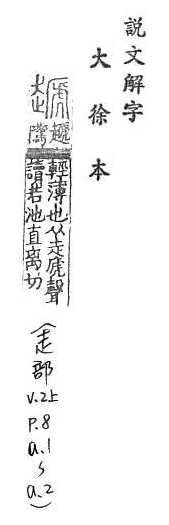 説文解字
大徐本
輕薄也从走虒聲
讀若池直离切
(走部
v.2上
P.8
a.1
~
a.2)